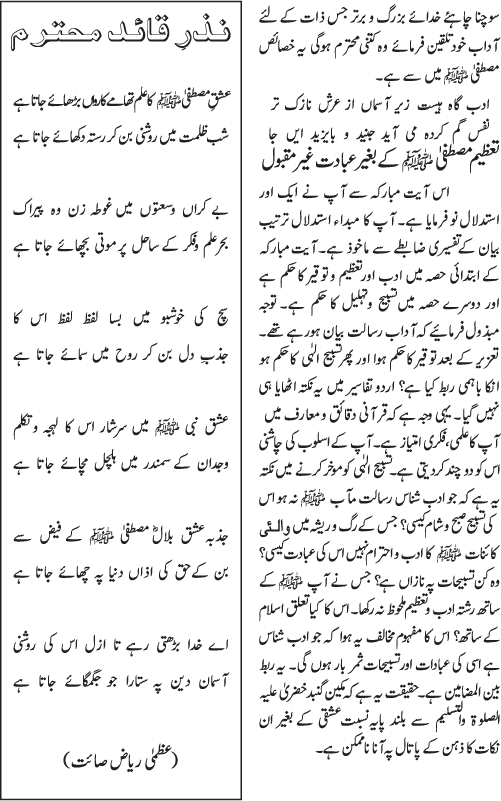 سوچنا چاہئے خدائے بزرگ و برتر جس ذات کے لئے
آداب خود تلقین فرمائے وہ کتنی محترم ہوگی یہ خصائص
مصطفیٰ ﷺ میں سے ہے۔
ادب گاہ ہیست زیر آسماں از عرش نازک تر
نفس گم کردہ می آید جنید و بایزید ایں جا
تعظیم مصطفیٰ ﷺ کے بغیر عبادت غیر مقبول
اس آیت مبارکہ سے آپ نے ایک اور
استدلال نو فرمایا ہے۔ آپ کا مبداء استدلال ترتیب
بیان کے تفسیری ضابطے سے ماخوذ ہے۔ آیت مبارکہ
کے ابتدائی حصہ میں ادب اور تعظیم و توقیر کا حکم ہے
اور دوسرے حصہ میں تسبیح وتہلیل کا حکم ہے۔ توجہ
مبذول فرمائیے کہ آداب رسالت بیان ہورہے تھے۔
تعزیر کے بعد توقیر کا حکم ہوا اور پھر تسبیح الٰہی کا حکم ہو
انکا باہمی ربط کیا ہے؟ اردو تفاسیر میں یہ نکتہ اٹھایا ہی
نہیں گیا۔ یہی وجہ ہے کہ قرآنی دقائق و معارف میں
آپ کا علمی، فکری امتیاز ہے۔ آپ کے اسلوب کی چاشنی
اس کو دو چند کردیتی ہے۔ تسبیح الٰہی کو مؤخر کرنے میں نکتہ
یہ ہے کہ جو ادب شناس رسالت مآب ﷺ نہ ہو اس
کی تسبیح صبح وشام کیسی؟ جس کے رگ و ریشہ میں والئی
کائنات ﷺ کا ادب و احترام نہیں اس کی عبادت کیسی؟
وہ کن تسبیحات پہ نازاں ہے؟ جس نے آپ ﷺ کے
ساتھ رشتہ ادب و تعظیم ملحوظ نہ رکھا۔ اس کا کیا تعلق اسلام
کے ساتھ؟ اس کا مفہوم مخالف یہ ہوا کہ جو ادب شناس
ہے اسی کی عبادات اور تسبیحات ثمر بار ہوں گی۔ یہ ربط
بین المضامین ہے۔ حقیقت یہ ہے کہ مکین گنبد خضریٰ علیہ
الصلوۃ والتسلیم سے بلند پایہ نسبت عشقی کے بغیر ان
نکات کا ذہن کے پاتال پہ آنا ناممکن ہے۔
نذرِ قائد محترم
عشق مصطفیٰ ﷺ کا علم تھامے کارواں بڑھائے جاتا ہے
شب ظلمت میں روشنی بن کر رستہ دکھائے جاتا ہے
بے کراں وسعتوں میں غوطہ زن وہ پیراک
بحر علم وفکر کے ساحل پر موتی بچھائے جاتا ہے
سچ کی خوشبو میں بسا لفظ لفظ اس کا
جذب دل بن کر روح میں سمائے جاتا ہے
عشق نبی ﷺ میں سرشار اس کا لہجہ وتکلم
وجدان کے سمندر میں ہلچل مچائے جاتا ہے
جذبہ عشق بلالؓ مصطفیٰ ﷺ کے فیض سے
بن کے حق کی اذاں دنیا پہ چھائے جاتا ہے
اے خدا بڑھتی رہے تا ازل اس کی روشنی
آسمان دین پہ ستارا جو جگمگائے جاتا ہے
(عظمیٰ ریاض صائت)